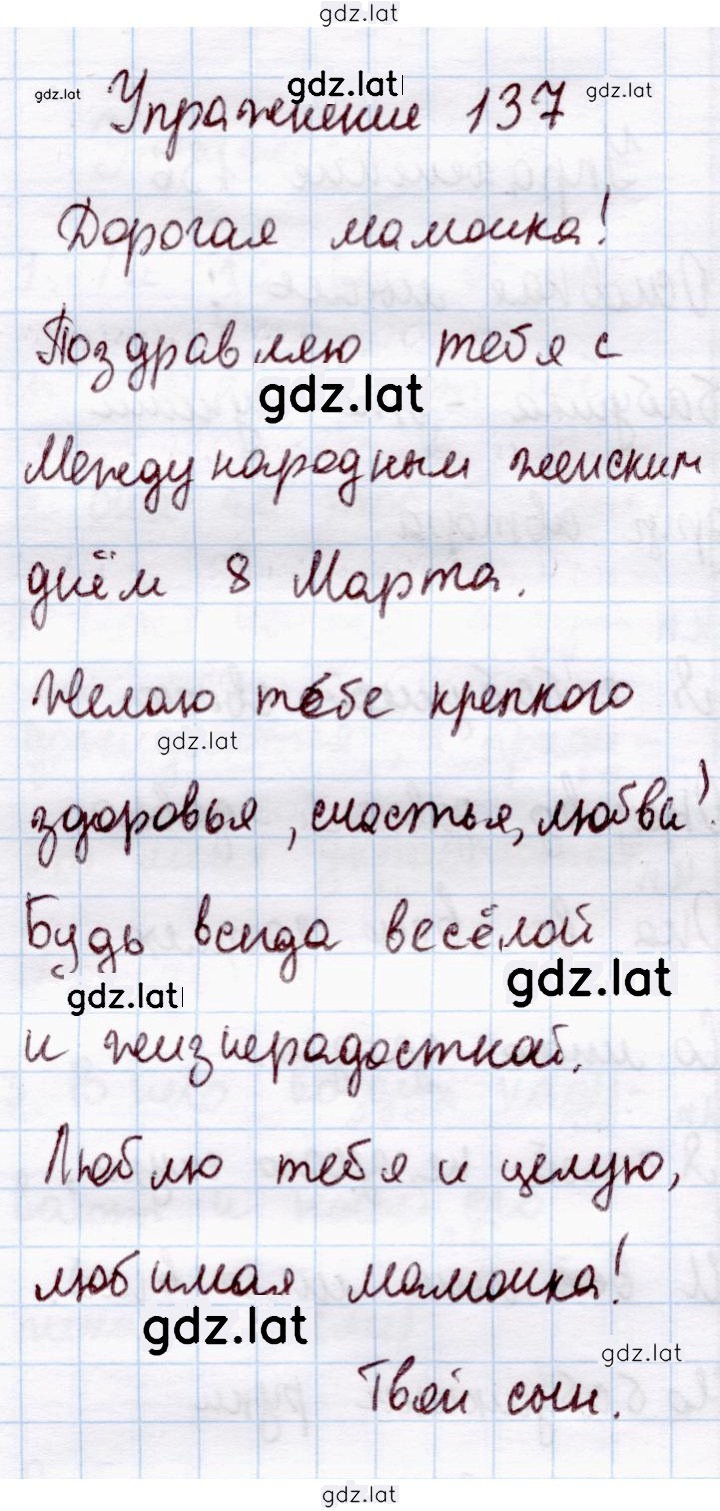 gdz.lat
gdz.lat
gdz.lat
gdz.lat
Упражнение 137
Дорогая мамочка!
Поздравляю тебя с
gdz.lat
Международным женским
днём 8 Марта.
Желаю тебе крепкого
gdz.lat
здоровья, счастья, любви!
Будь всегда весёлой
gdz.lat
gdz.lat
и жизнерадостной.
Люблю тебя и целую,
любимая мамочка!
gdz.lat
gdz.lat
Твой сын.
gdz.lat